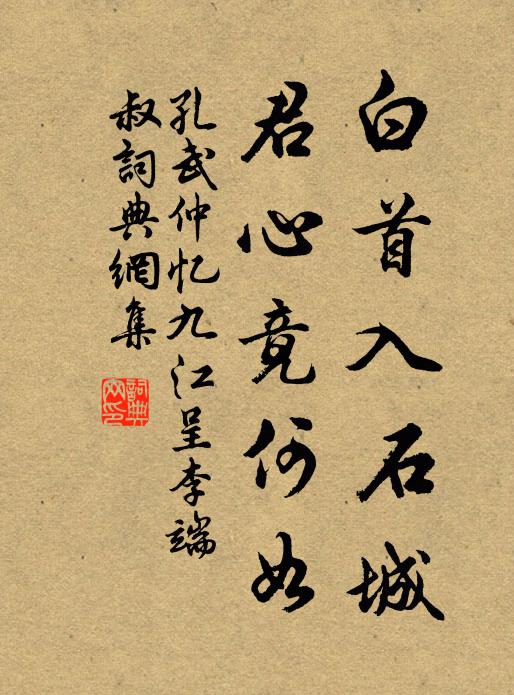 白首入石城
君心竟何如
孔武仲忆九江呈李端
叔詞典網集
詞典
网印